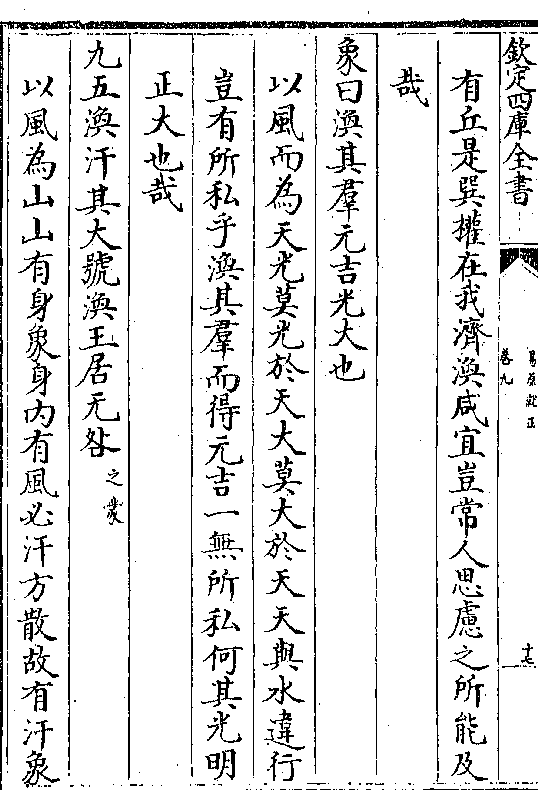 欽定四庫全書
易原就正
卷九
十七
有丘是巽權在我濟渙咸宜豈常人思慮之所能及
哉
象曰渙其羣元吉光大也
以風而為天光莫光於天大莫大於天天與水違行
豈有所私乎渙其羣而得元吉一無所私何其光明
正大也哉
九五渙汗其大號渙王居无咎之蒙
以風為山山有身象身内有風必汗方散故有汗象